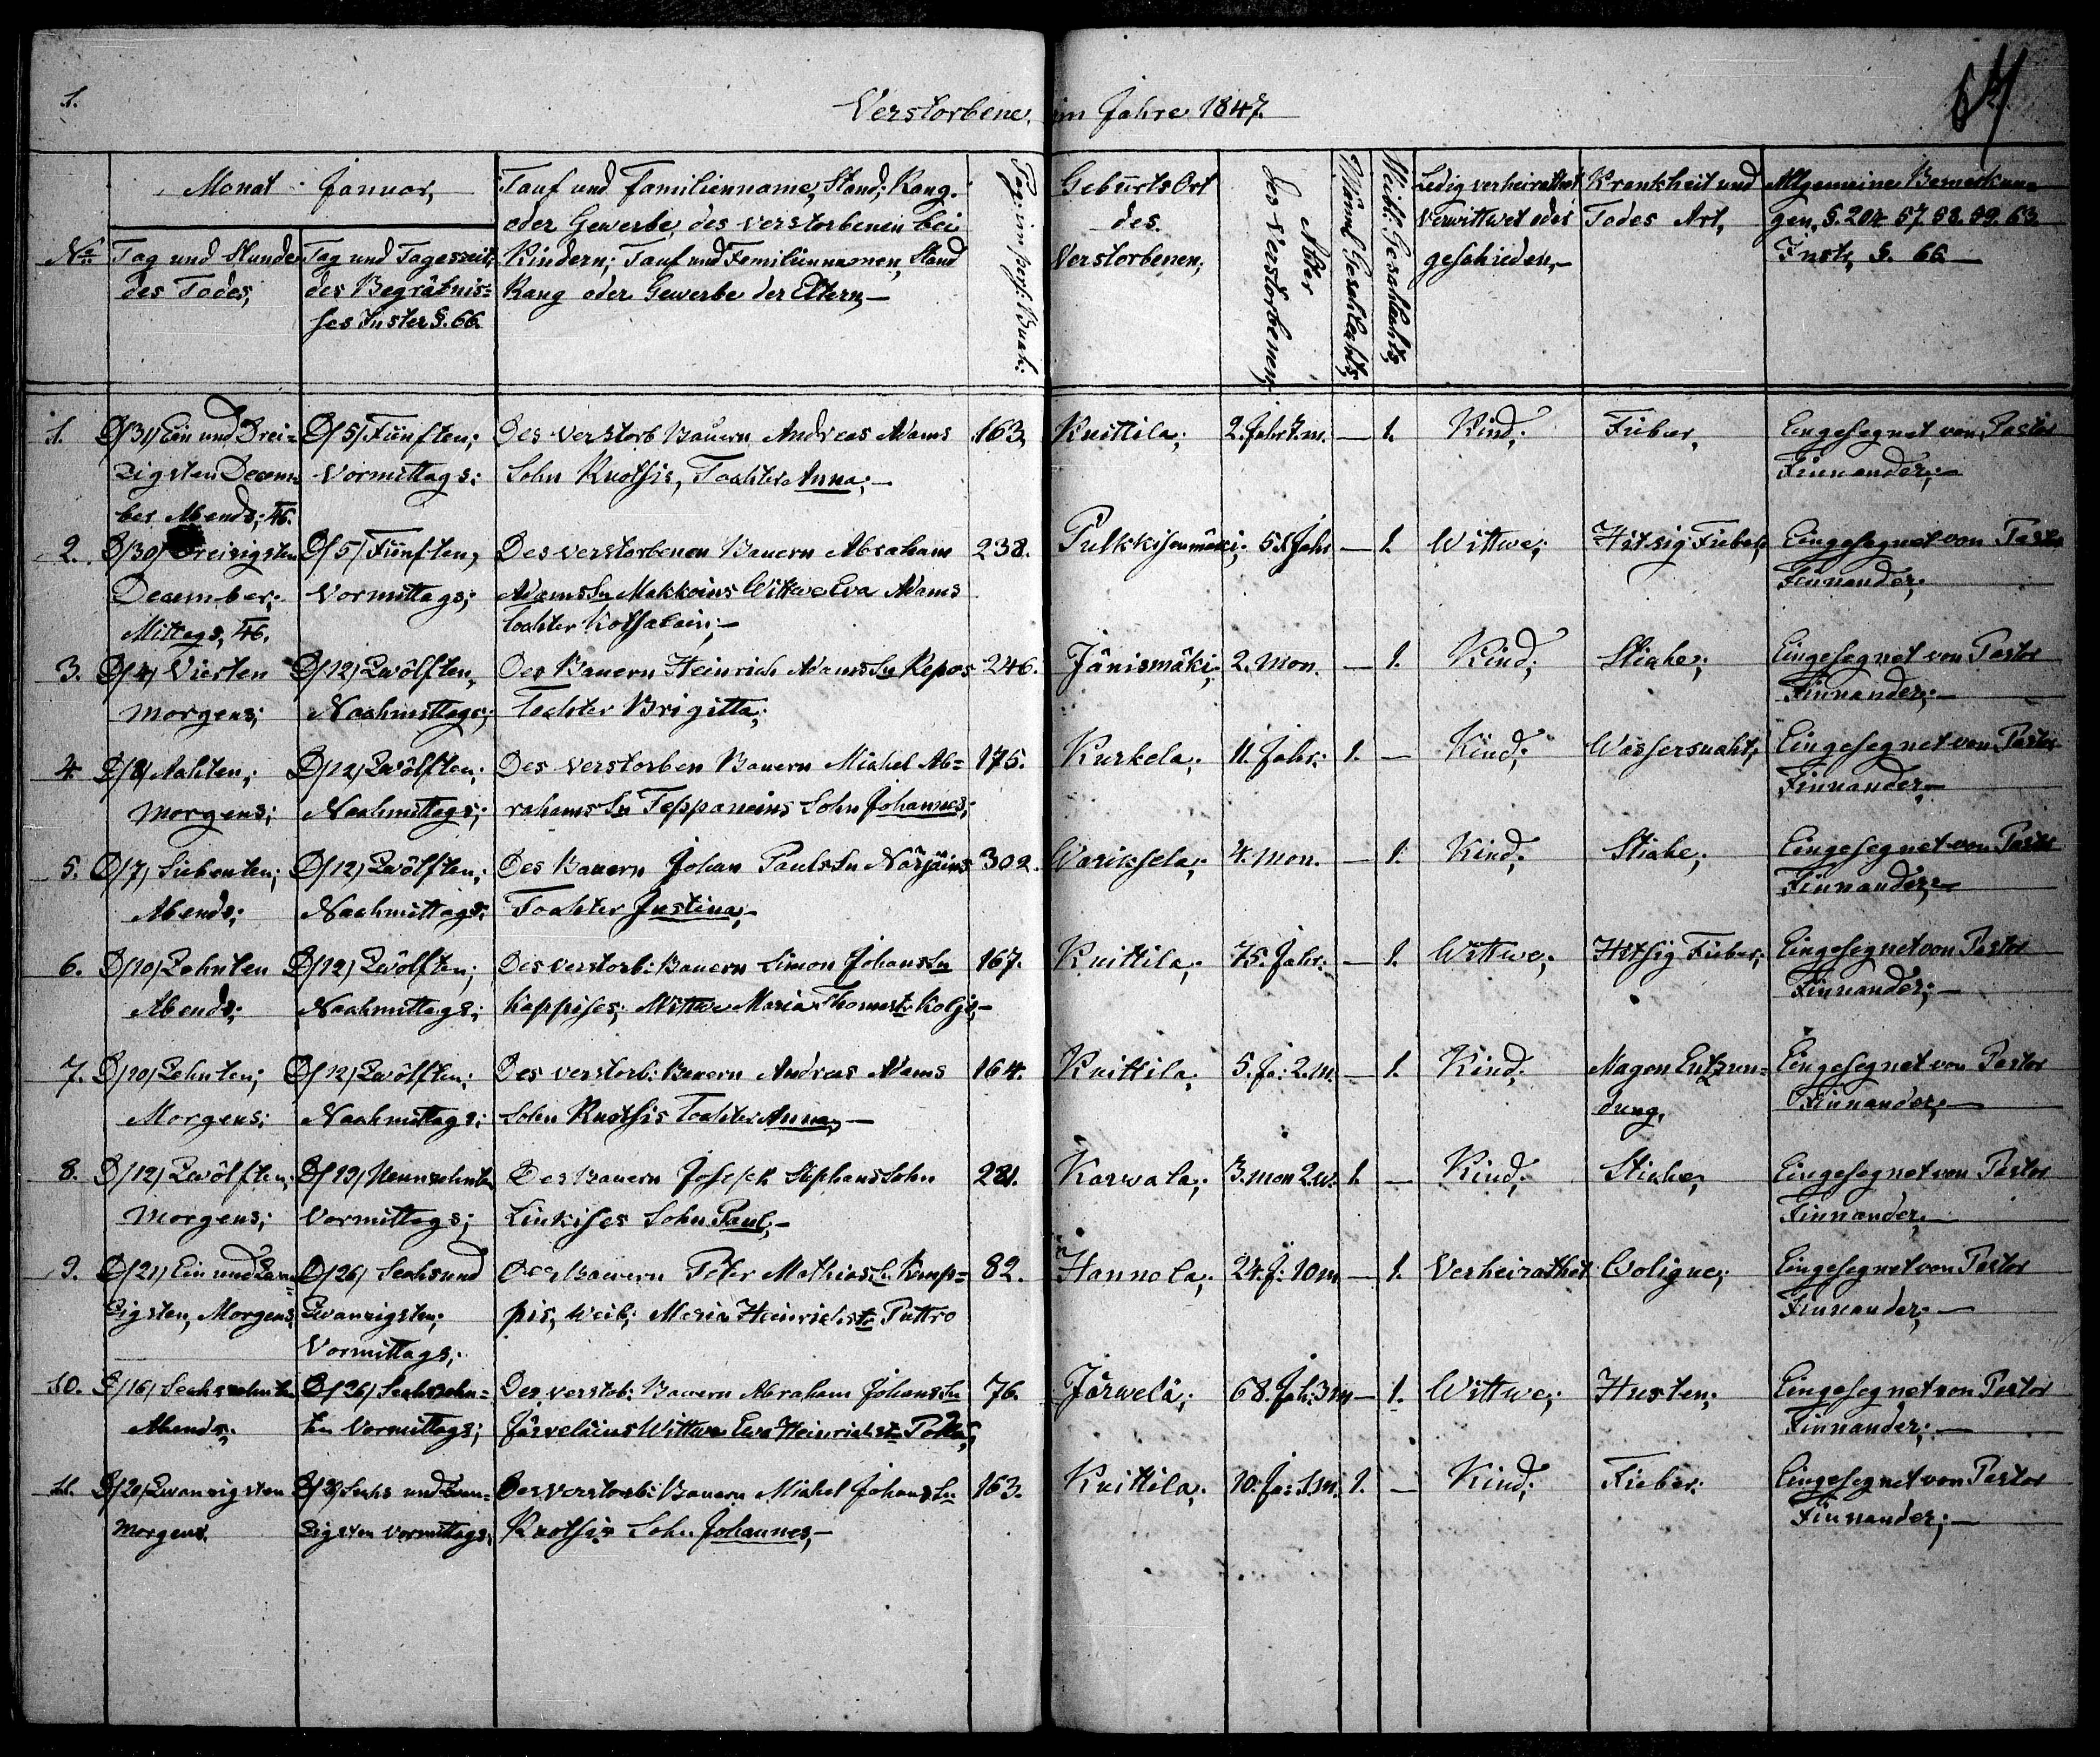 1.
Verstorbene im Jahre 1847.
Monat Januar,
Tauf und Familienname, Stand, Rang
oder Gewerbe, des verstorbenen bei
Kindern; Tauf und Familiennamen, Stand
Rang oder Gewerbe der Eltern,—
Geburts Ort
des
Verstorbenen;
Alter
des Verstorbenen;
Männl: Geschlechts,
Weibl: Geschlechts,
Ledig verheirathet
verwittwet oder
geschieden,—
Krankheit und
Todes Art,
Allgemeine Bemerkun-
gen, §. 204. 57. 58. 59. 63.
Instr. §. 66—
No
Tag und Stunde
des Todes,
Tag und Tageszeit,
des Begräbnis=
ses Instr §. 66.
Pag: im pers: Buch:
1. D/31/ Ein und Drei= D/5/ Fünften; Des verstorb Bauern Andreas Adams 163. Knittila; 2. Jahr 7. m. — 1. Kind; Fieber, Eingesegnet von Pastor
zigsten Decem Vormittags; Sohn Ruothsis, Tochter Anna;— Finnander;—
ber Abends; 46.
2. D/30/ Dreisigsten D/5/ Fünften, Des verstorbenen Bauern Abraham 238. Pulkkisenmäki; Jahr — 1. Wittwe; Hitzig Fieber, Eingesegnet von Pastor
December; Vormittags; Adams Sn Makkoins Wittwe Eva Adams Finnander;
Mittags, 46. tochter —
3. D/4/ Vierten D/12/ Zwölften, Des Bauern Heinrich Adams Sn Repos 246. Jänismäki; 2. Mon. — 1. Kind; Stiche; Eingesegnet von Pastor
Morgens; Nachmittags; Tochter Brigitta; Finnander;—
4. D/8/ Achten; D/12/ Zwölften; Des verstorben Bauern Michel Ab= 175. Kurkela; 11. Jahr: 1. — Kind; Wassersucht; Eingesegnet von Pastor
Morgens; Nachmittags; rahams Sn Teppaneins Sohn Johannes; Finnander,—
5. D/7/ Siebenten; D/12/ Zwölften; Des Bauern Johan Pauls Sn Närjäins 302. Wariksela; 4. Mon. — 1. Kind; Stiche; Eingesegnet von Pastor
Abends; Nachmittags; Tochter Justina;— Finnander;—
6. D/10/ Zehnten D/12/ Zwölften; Des verstorb: Bauern Simon Johans Sn 167. Knittila; 75. Jahr: — 1. Wittwe; Hitzig Fieber; Eingesegnet von Pastor
Abends; Nachmittags; Wittwe Maria Thomas t. — Finnander;—
7. D/10/ Zehnten; D/12/ Zwölften; Des verstorb: Bauern Andreas Adams 164. Knittila; 5. Ja: 2. m. — 1. Kind; Magen Entzün= Eingesegnet von Pastor
Morgens; Nachmittags; Sohn Ruothsis Tochter Anna,— dung, Finnander;—
8. D/12/ Zwölften; D/19/ Neunzehnten Des Bauern Joseph Stephans Sohn 281. Karwala; 3. mon 2. w. 1. — Kind; Stiche; Eingesegnet von Pastor
Morgens; Vormittags; Linkises Sohn Paul;— Finnander;—
9. D/21/ Ein und Zwan= D/26/ Sechs und Des Bauern Peter Mathias S. Kimp= 82. Hannola; 24. J: 10 m — 1. Verheirathet Eingesegnet von Pastor
zigsten, Morgens; Zwanzigsten; pis, Weib; Maria Heinrichs t. Puttro Finnander;—
Vormittags;
10. D/16/ Sechszehnten D/26/ Sechszehn= Des verstob: Bauern Abraham Johans Sn 76. Järwelä; 68. Jah: 3 m — 1. Wittwe; Husten; Eingesegnet von Pastor
Abends; ten Vormittags; Järveläins Wittwe Eva Heinrichs t. Finnander;—
11. D/20/ Zwanzigsten Sechs und Zwan= Des verstorb: Bauern Michel Johans Sn 163. Knittila; 10. Ja: 1 m. 1. — Kind; Fieber: Eingesegnet von Pastor
Morgens. zigsten Vormittags; Ruothsis Sohn Johannes,— Finnander;—